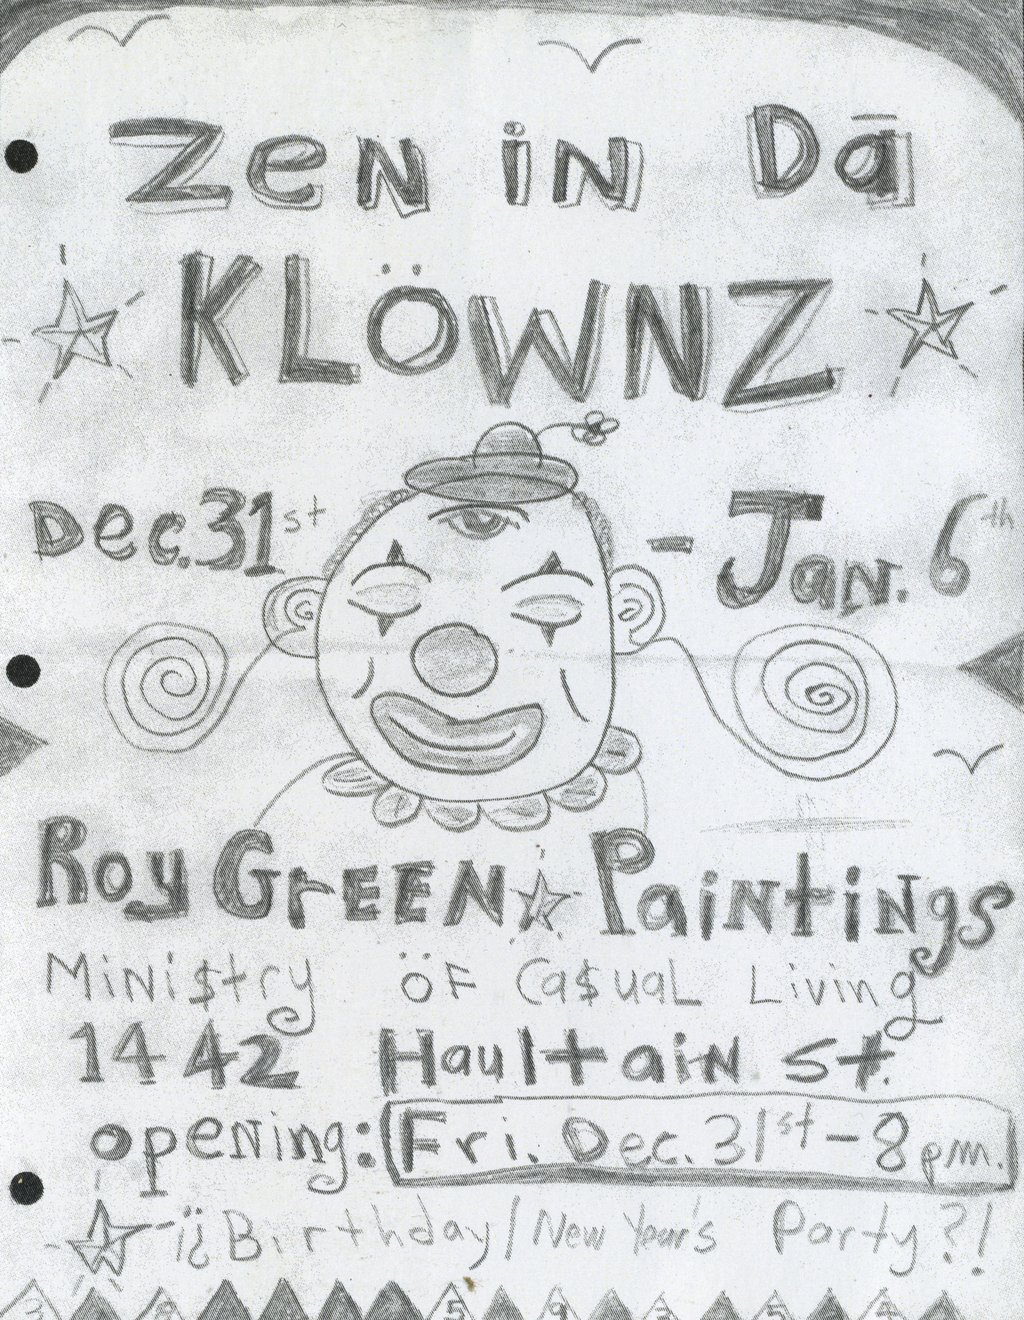 Zen in Dā
KLÖWNZ
Dec. 31st - Jan. 6th
Roy GrEEN Paintings
Mini$try öF Ca$uaL Living
1442 Haultain St.
opening: Fri. Dec. 31st - 8 pm.
¡¿Birthday/New Year's Party?!
3 8 5 9 3 5 4